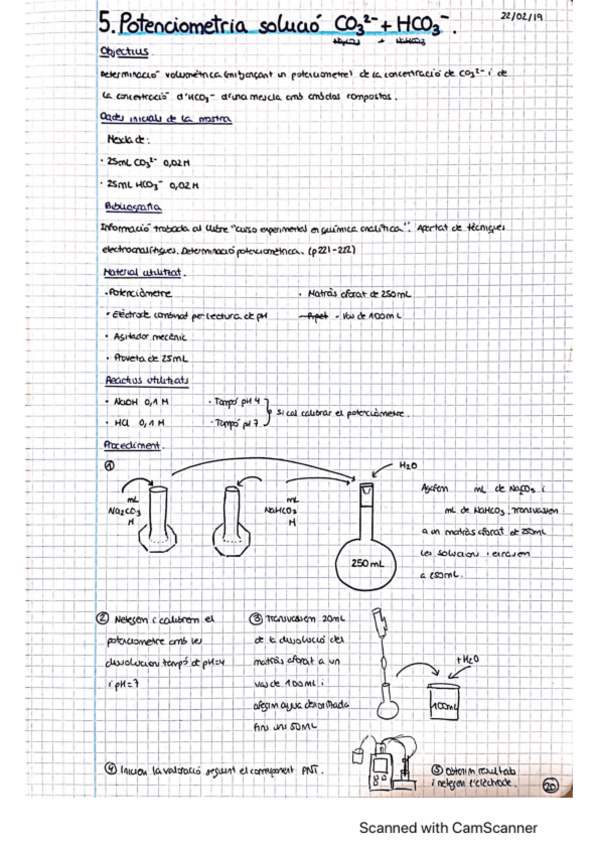 5. Potenciometria solució CO₃²⁻ + HCO₃⁻.
22/02/19
Na₂CO₃ + NaHCO₃
Objectius
Determinació volumètrica (mitjançant un potenciometre) de la concentració de CO₃²⁻ i de
la concentració d'HCO₃⁻ d'una mescla amb ambdós compostos.
Dades inicials de la mostra
Mescla de:
· 25mL CO₃²⁻ 0,02M
· 25mL HCO₃⁻ 0,02M
Bibliografia
Informació trobada al llibre "curso experimental en química analítica". Apartat de tècniques
electroanalítiques. Determinació potenciomètrica. (p221-222)
Material utilitzat.
· Potenciòmetre
· Matràs aforat de 250mL
· Elèctrode combinat per lectura de pH
· Vas de 100mL
· Agitador mecànic
· Proveta de 25mL
Reactius utilitzats
· NaOH 0,1M
· Tampó pH 4
· HCl 0,1M
· Tampó pH 7
si cal calibrar el potenciòmetre.
Procediment.
①
mL
Na₂CO₃
M
mL
NaHCO₃
M
H₂O
250mL
Agafem mL de Na₂CO₃ i
mL de NaHCO₃. Transvasem
a un matràs aforat de 250mL
les solucions i enrasem
a 250mL.
② Netegem i calibrem el
potenciometre amb les
dissolucions tampó de pH=4
i pH=7
③ Transvasem 20mL
de la dissolució del
matràs aforat a un
vas de 100mL i
afegim aigua desionitzada
fins uns 50mL
+H₂O
100mL
④ Iniciem la valoració seguint el corresponent PNT.
⑤ Obtenim resultats
i netegem l'elèctrode.
20
Scanned with CamScanner